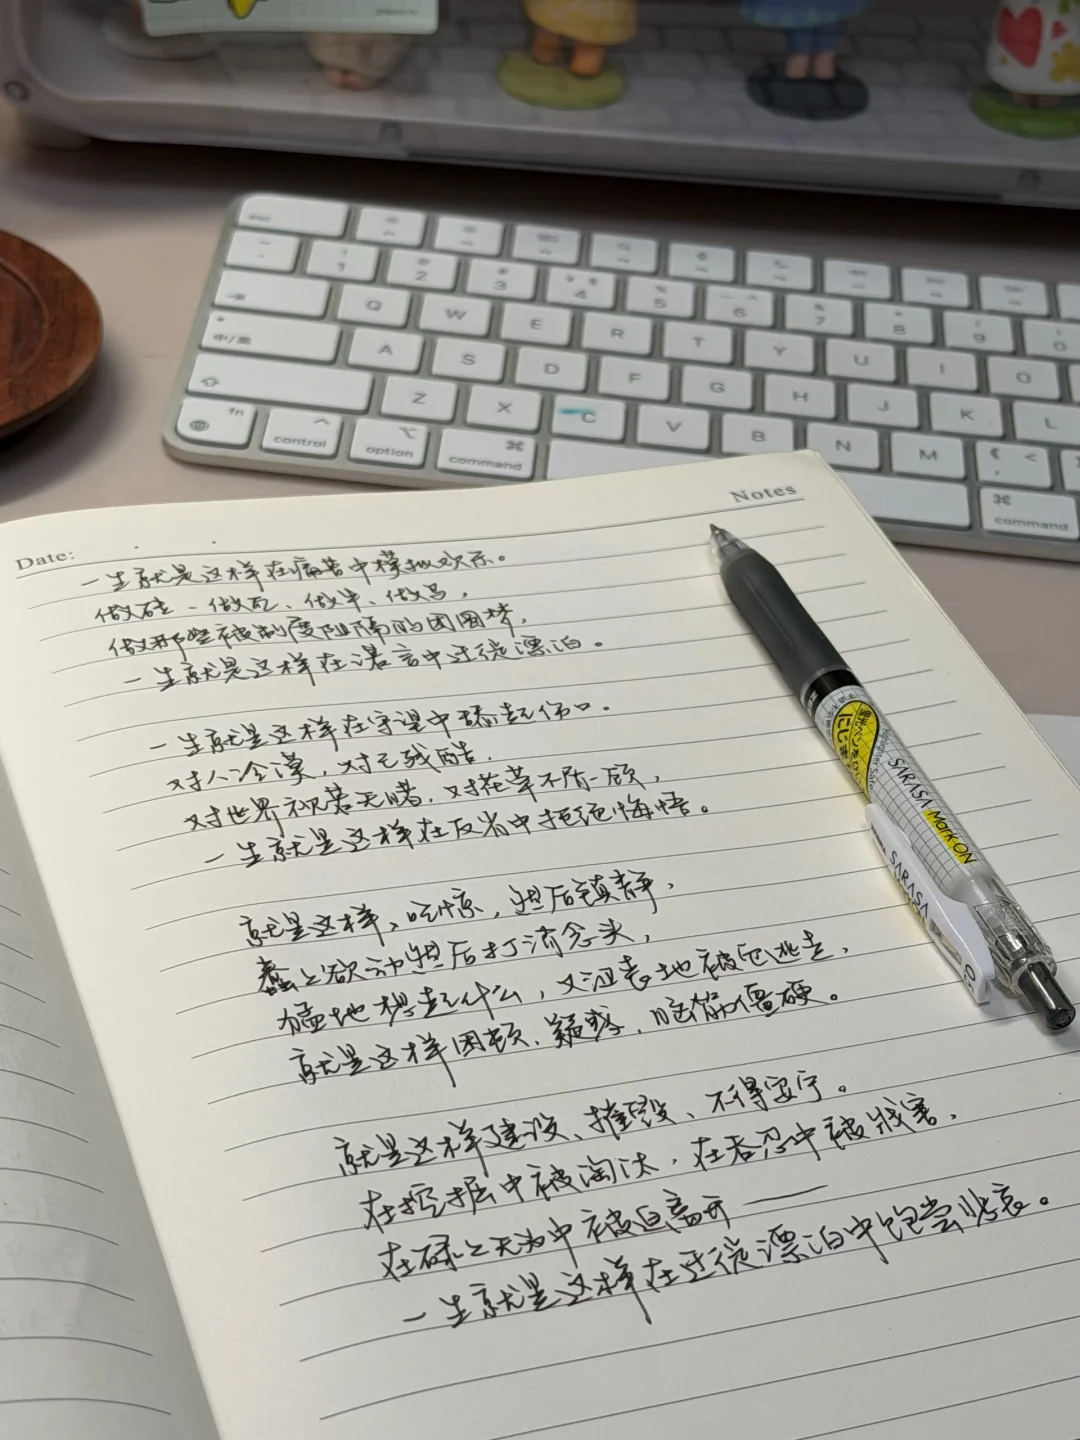 Date:
Notes
一生就是这样在痛苦中模拟欢乐。
做砖、做瓦、做牛、做马，
做那些被制度阻隔的团圆梦，
一生就是这样在语言中迁徙漂泊。
一生就是这样在守望中舔起伤口。
对人冷漠，对己残酷，
对世界视若无睹，对花草不屑一顾，
一生就是这样在反省中拒绝悔悟。
就是这样、吃惊，然后镇静，
蠢蠢欲动然后打消念头，
猛地想起什么，又沮丧地被它逃走，
就是这样困顿、疑惑、脑筋僵硬。
就是这样建设、摧毁、不得安宁。
在挖掘中被淘汰，在容忍中被戕害，
在碌碌无为中被迫离开——
一生就是这样在迁徙漂泊中饱尝悲哀。
SARASA Mark ON
SARASA
0.5
esc
1
2
3
4
5
6
7
8
9
0
Q W E R T Y U I O
中/英
A S D F G H J K L
Z X C V B N M
fn
control
option
command
command